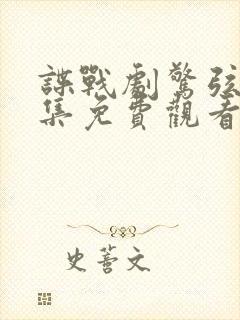 諜戰劇驚弦
集免費觀看
史薈文